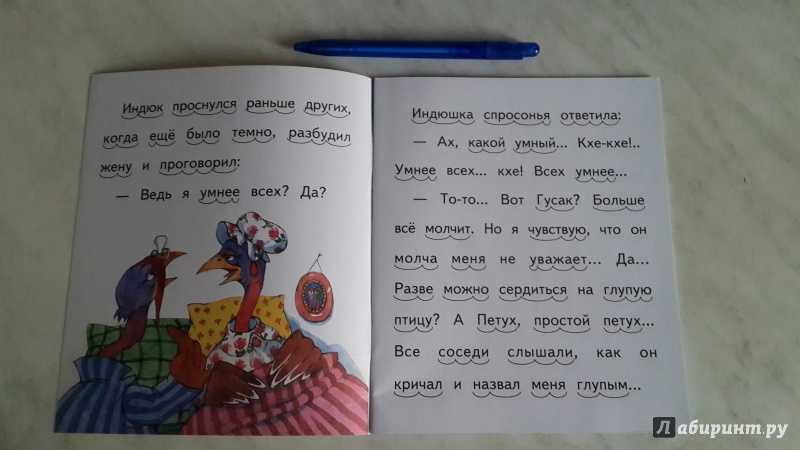 Индюк проснулся раньше других,
когда ещё было темно, разбудил
жену и проговорил:
— Ведь я умнее всех? Да?
Индюшка спросонья ответила:
— Ах, какой умный... Кхе-кхе!..
Умнее всех... кхе! Всех умнее...
— То-то... Вот Гусак? Больше
всё молчит. Но я чувствую, что он
молча меня не уважает... Да...
Разве можно сердиться на глупую
птицу? А Петух, простой петух...
Все соседи слышали, как он
кричал и назвал меня глупым...
Лабиринт.ру